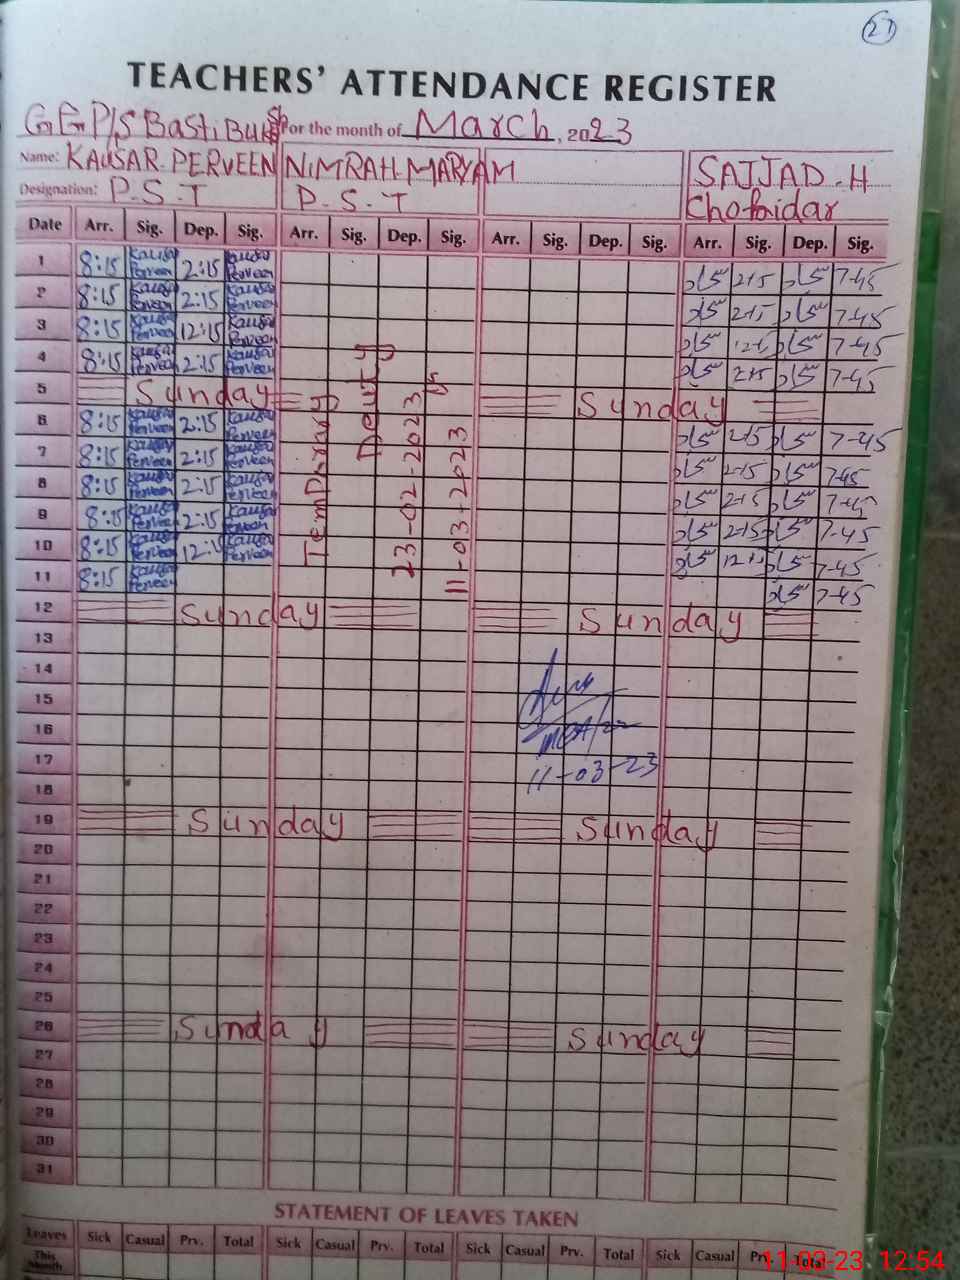 21
TEACHERS' ATTENDANCE REGISTER
GGP/S Basti Buksh For the month of March, 2023
Name: KAUSAR PERVEEN NIMRAH MARYAM SAJJAD.H
Designation: P.S.T P.S.T Chokidar
Date Arr. Sig. Dep. Sig. Arr. Sig. Dep. Sig. Arr. Sig. Dep. Sig. Arr. Sig. Dep. Sig.
1 8:15 Kausar Perveen 2:15 Kausar Perveen 2-15 7-45
2 8:15 Kausar Perveen 2:15 Kausar Perveen 2-15 7-45
3 8:15 Kausar Perveen 12:15 Kausar Perveen 7-45
4 8:15 Kausar Perveen 2:15 Kausar Perveen 2-15 7-45
5 Sunday Sunday
6 8:15 Kausar Perveen 2:15 Kausar Perveen 2-15 7-45
7 8:15 Kausar Perveen 2:15 Kausar Perveen 2-15 7-45
8 8:15 Kausar Perveen 2:15 Kausar Perveen 2-15 7-45
9 8:15 Kausar Perveen 2:15 Kausar Perveen 2-15 7-45
10 8:15 Kausar Perveen 12:15 Kausar Perveen 7-45
11 8:15 Kausar Perveen 7-45
Temporary Deuty
23-02-2023
11-03-2023
12 Sunday Sunday
13
14
15
16
17
11-03-23
18
19 Sunday Sunday
20
21
22
23
24
25
26 Sunday Sunday
27
28
29
30
31
STATEMENT OF LEAVES TAKEN
Leaves Sick Casual Prv. Total Sick Casual Prv. Total Sick Casual Prv. Total Sick Casual Prv. Total
This Month
11-03-23 12:54